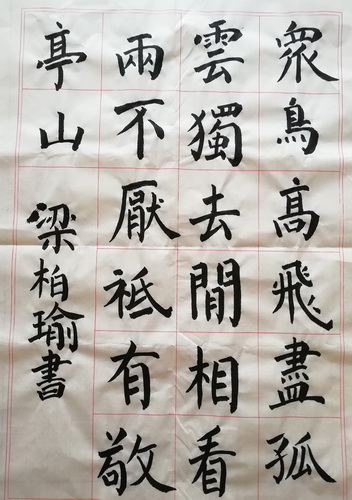 眾鳥高飛盡孤
雲獨去閒相看
兩不厭祗有敬
亭山
梁柏瑜書